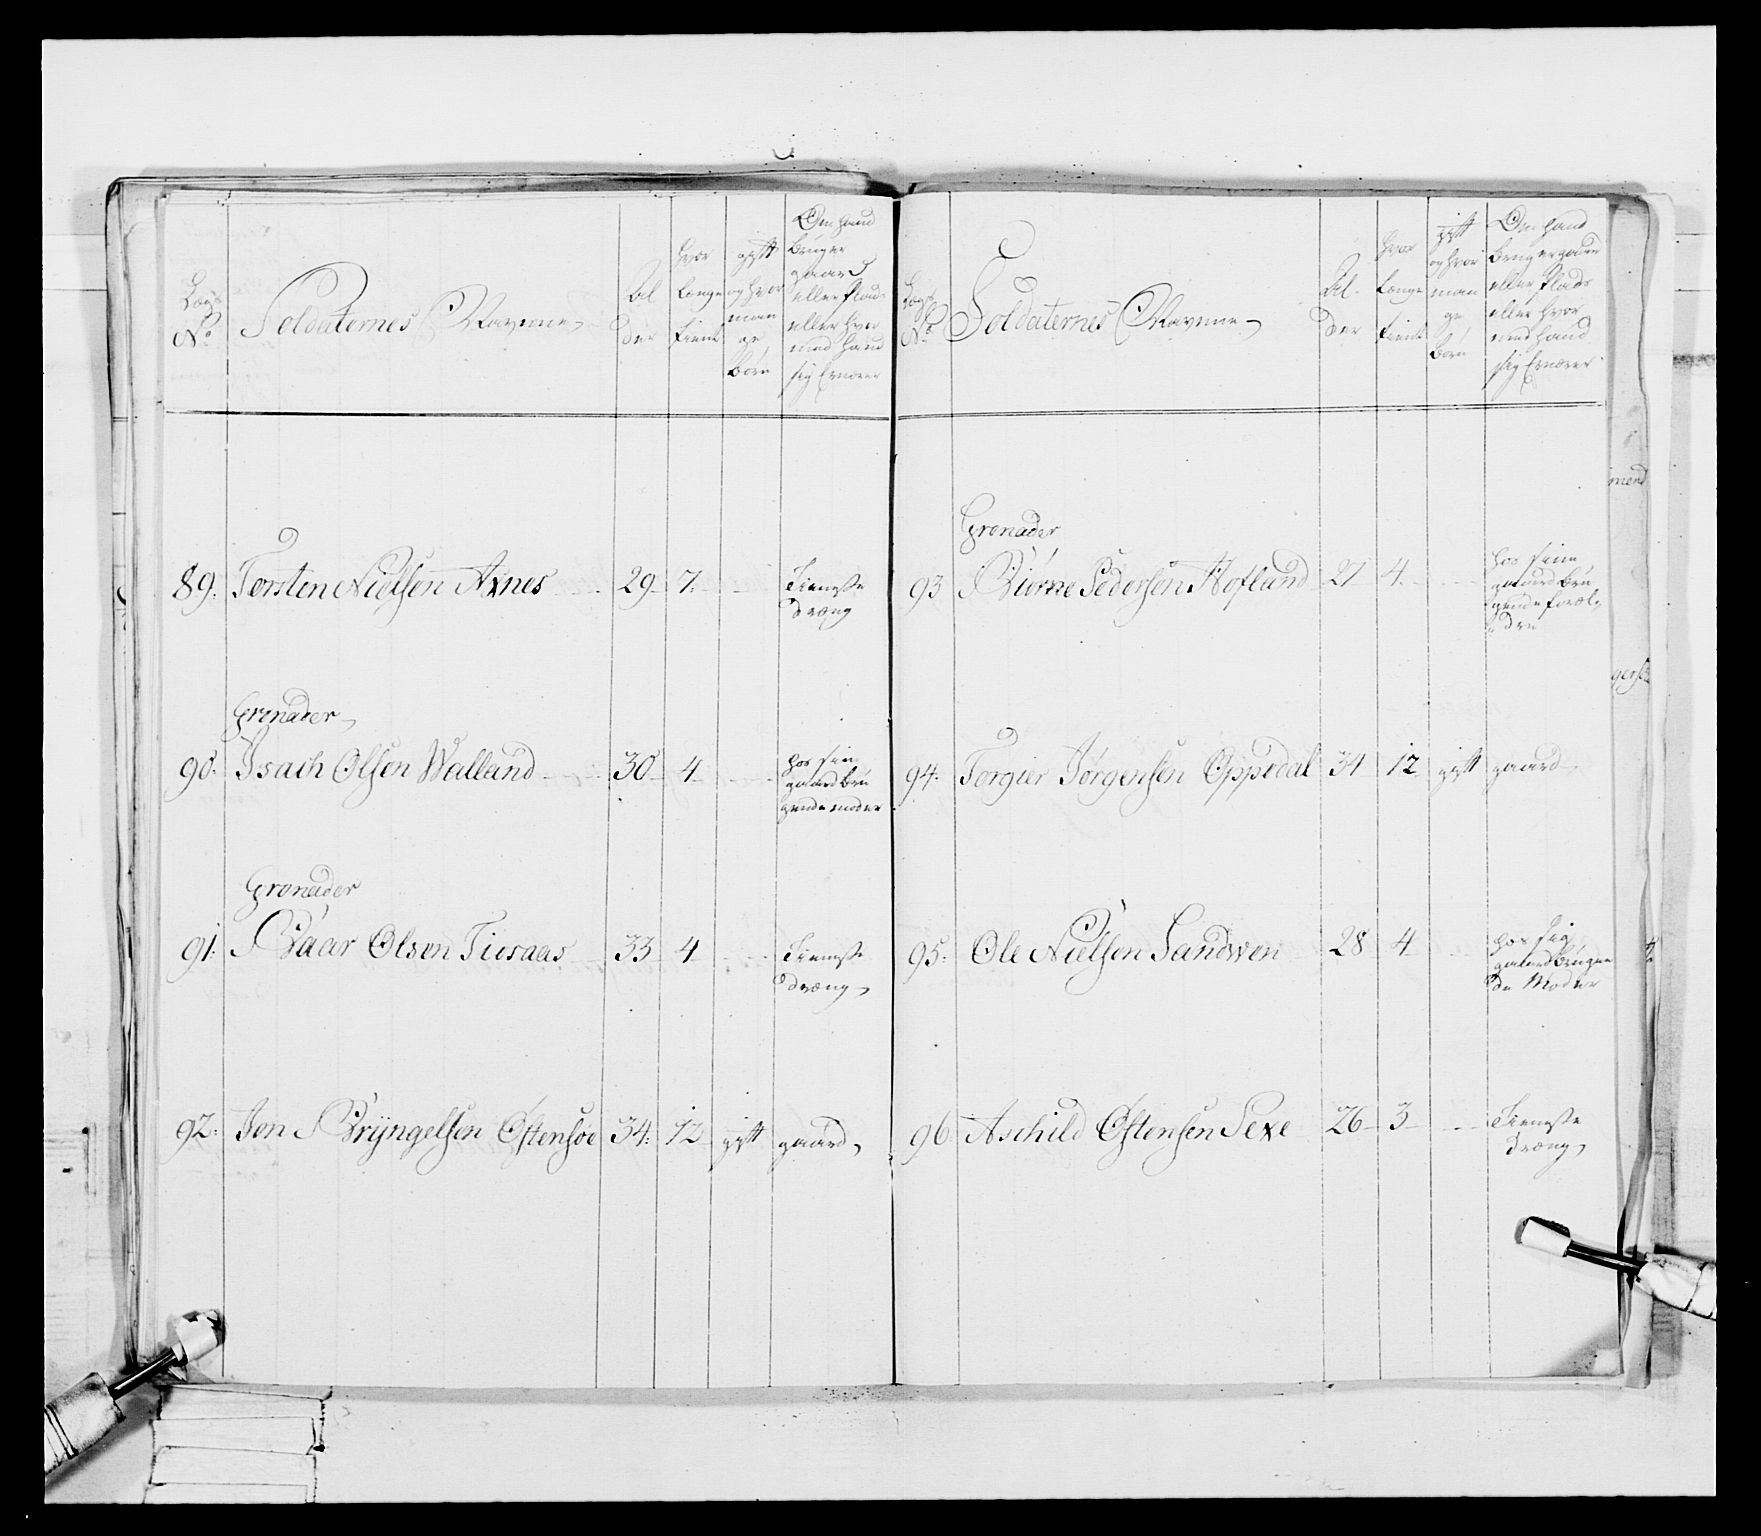 Lægs No
Soldaternes Navnne
Al
der
hvor
længe
tient
gift
og hvor
man
ge
børn
Om hand
bruger
gaard
eller Plads
eller hvor
med hand
sig Ernærer
89. Torsten Nielsen Axnes 29 7. Tieneste
dræng
Grenader
90. Isach Olsen Walland 30 4 hos sin
gaard bru
gende moder
Grenader
91. Baar Olsen Tiosaas 33 4 Tieneste
dræng
92. Jon Bryngelsen Østensøe 34. 12 gift gaard
Lægs No
Soldaternes Navnne
Al-
der
hvor
længe
tient
gift
og hvor
man
ge
børn
Om hand
bruger gaard
eller Plads
eller hvor
med hand
sig Ernærer
Grenader
93 Biørne Pedersen Hofland 27 4. hos sine
gaard bru
gende foræl
dre
94. Torgier Jørgensen Oppedal 34 12 gift gaard
95. Ole Nielsen Sandwen 28 4 hos sig
gaard brugen
de Moder
96 Aschild Østensen Sexe 26 3 Tieneste
dræng